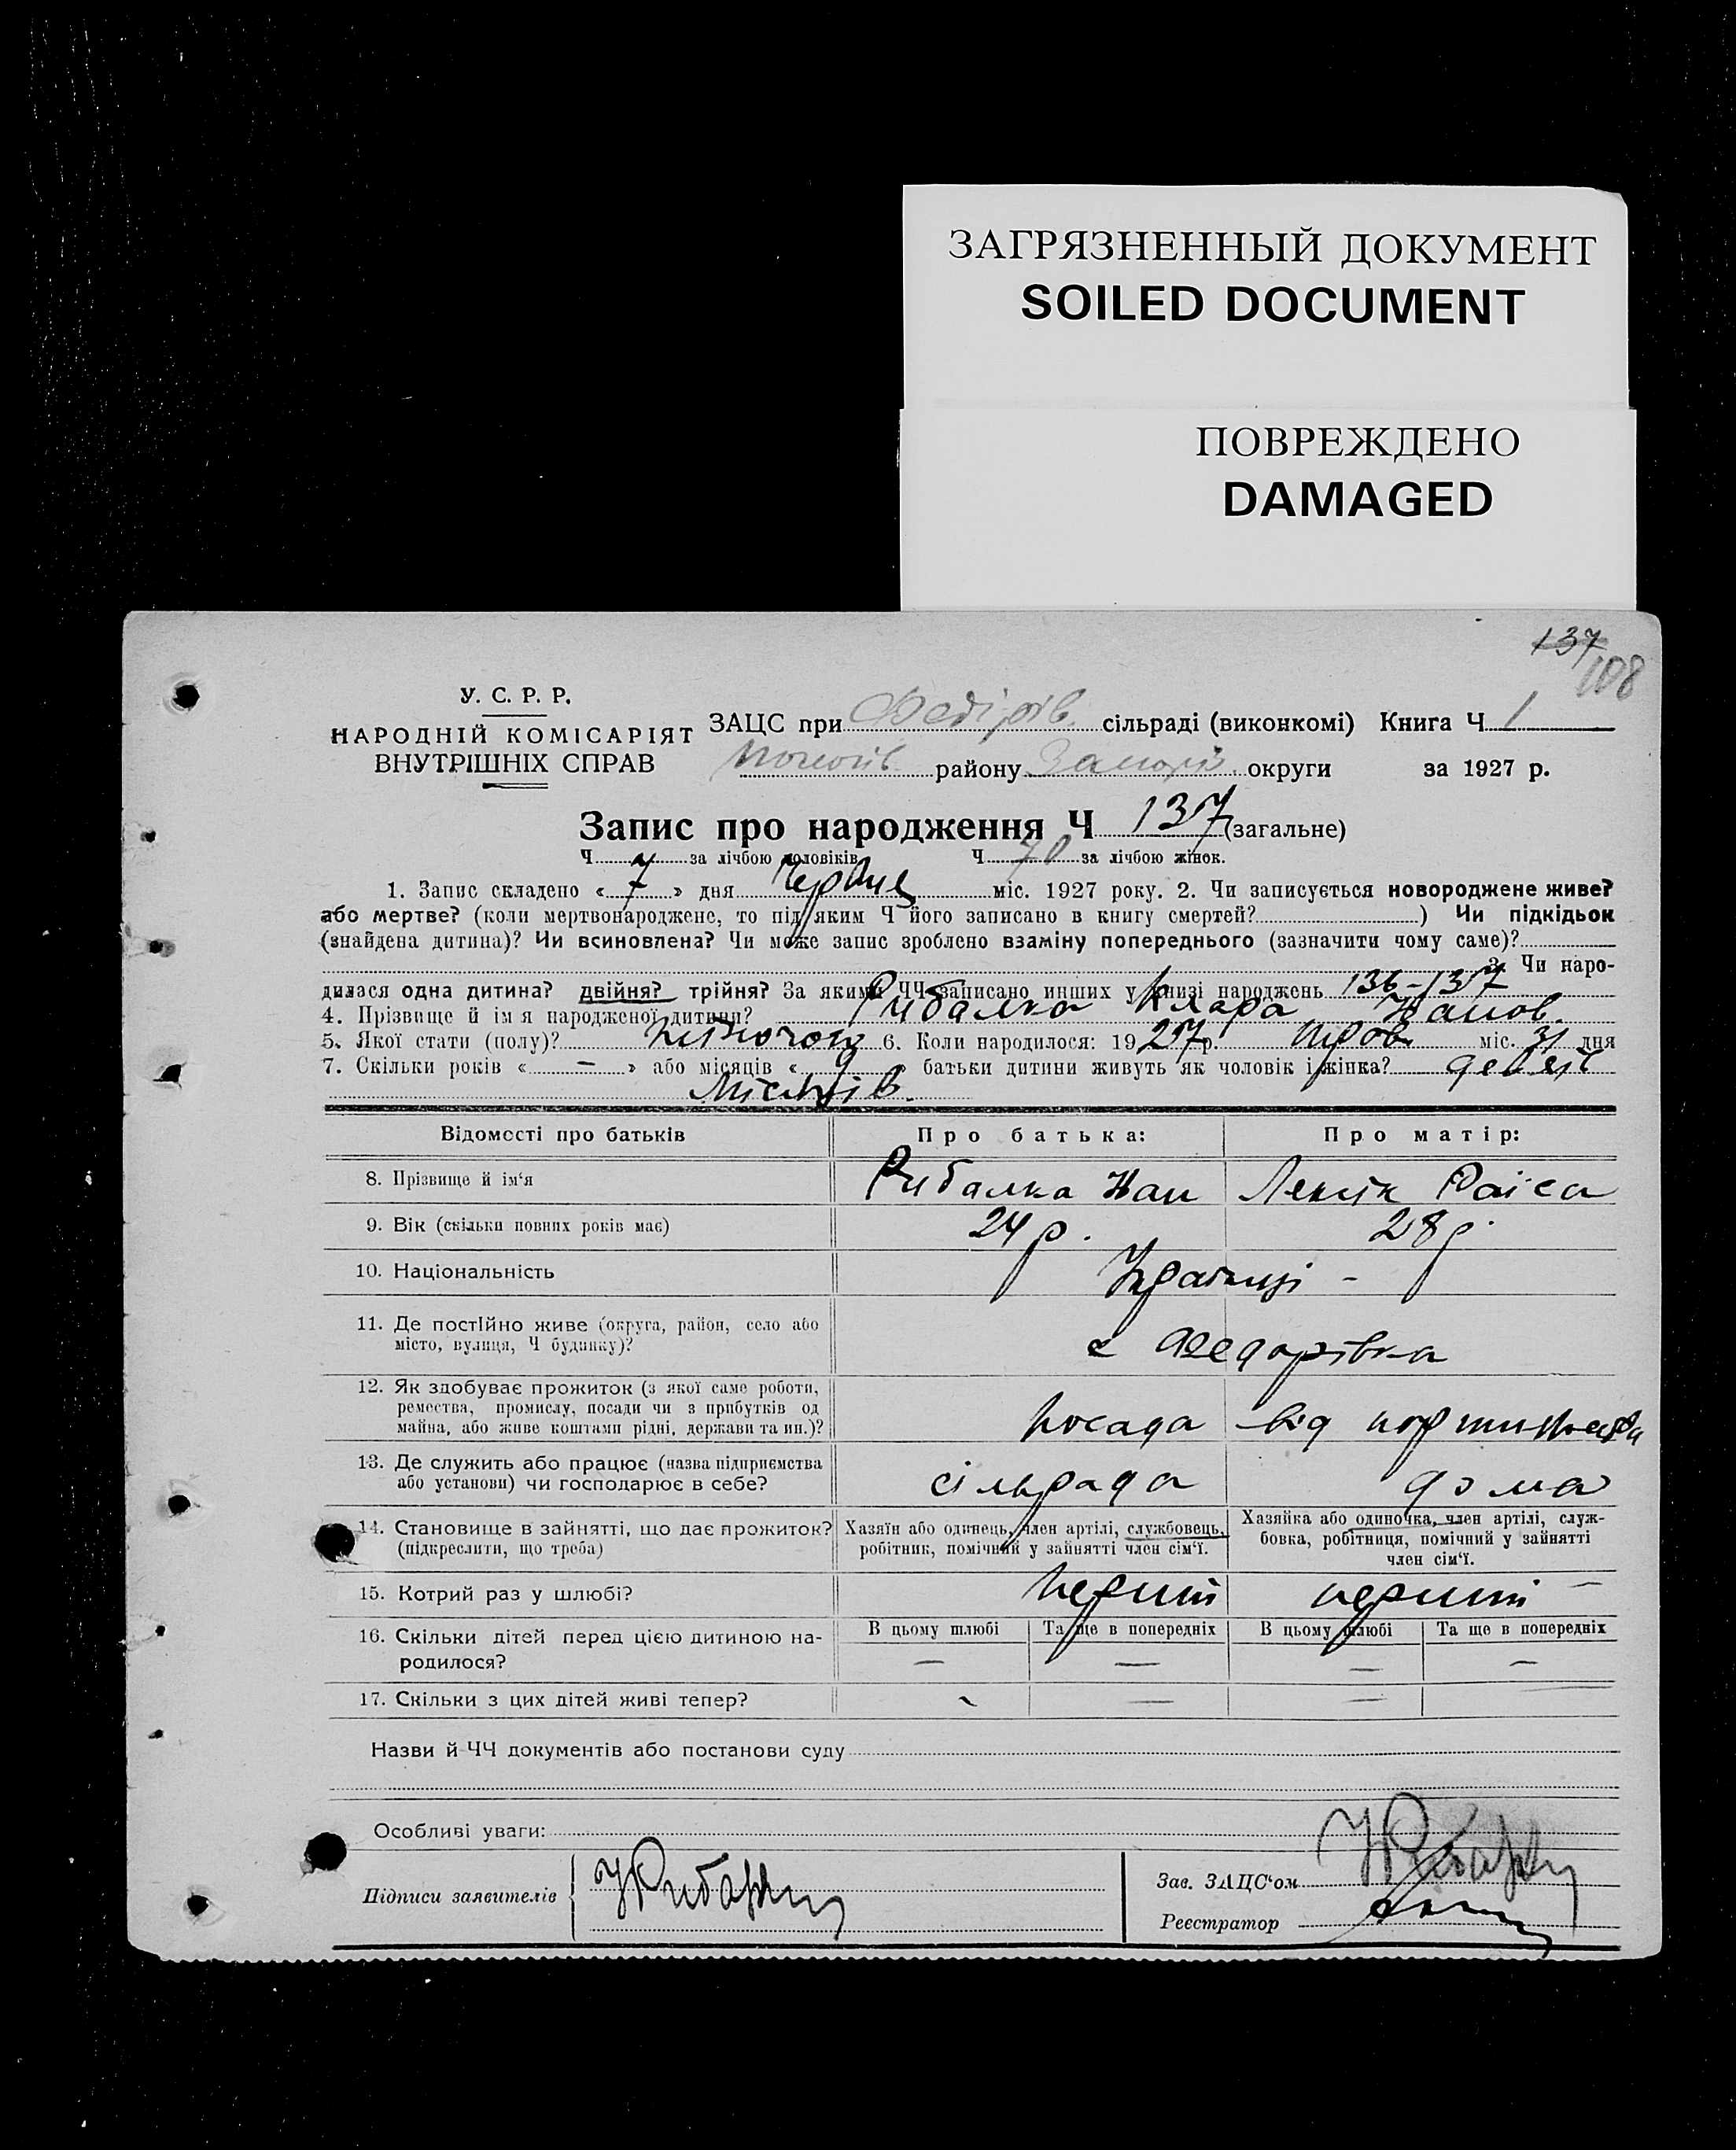 ЗАГРЯЗНЕННЫЙ ДОКУМЕНТ
SOILED DOCUMENT
ПОВРЕЖДЕНО
DAMAGED
137
108
У. С. Р. Р.
НАРОДНІЙ КОМІСАРІЯТ
ВНУТРІШНІХ СПРАВ
ЗАЦС при Федірів. сільраді (виконкомі) Книга Ч 1
району Запоріз. округи за 1927 р.
Запис про народження Ч 137 (загальне)
Ч за лічбою чоловіків Ч 70 за лічбою жінок.
1. Запис складено « 7 » дня Червня міс. 1927 року. 2. Чи записується новороджене живе?
або мертве? (коли мертвонароджене, то під яким Ч його записано в книгу смертей? ) Чи підкідьок
(знайдена дитина)? Чи всиновлена? Чи може запис зроблено взаміну попереднього (зазначити чому саме)?
3. Чи наро-
дилася одна дитина? двійня? трійня? За якими ЧЧ записано инших у книзі народжень 136-137
4. Прізвище й ім'я народженої дитини? Рибалка Клара Іванов.
5. Якої стати (полу)? жіночої 6. Коли народилося: 1927 р. міс. 31 дня
7. Скільки років « — » або місяців « 9 » батьки дитини живуть як чоловік і жінка? девять
місяців.
Відомості про батьків
Про батька:
Про матір:
8. Прізвище й ім'я Рибалка Іван Раїса
9. Вік (скільки повних років має) 24 р. 28 р.
10. Національність Українці -
11. Де постійно живе (округа, район, село або
місто, вулиця, Ч будинку)?
с Федорівка
12. Як здобуває прожиток (з якої саме роботи,
ремества, промислу, посади чи з прибутків од
майна, або живе коштами рідні, держави та ин.)?
посада від
13. Де служить або працює (назва підприємства
або установи) чи господарює в себе?
сільрада дома
14. Становище в зайнятті, що дає прожиток?
(підкреслити, що треба)
Хазяїн або одинець, член артілі, службовець,
робітник, помічний у зайнятті член сім'ї.
Хазяйка або одиночка, член артілі, служ-
бовка, робітниця, помічний у зайнятті
член сім'ї.
15. Котрий раз у шлюбі? перший перший —
16. Скільки дітей перед цією дитиною на-
родилося?
В цьому шлюбі Та ще в попередніх В цьому шлюбі Та ще в попередніх
— — — —
17. Скільки з цих дітей живі тепер? — — — —
Назви й ЧЧ документів або постанови суду
Особливі уваги:
Підписи заявителів
Зав. ЗАЦС'ом
Реєстратор